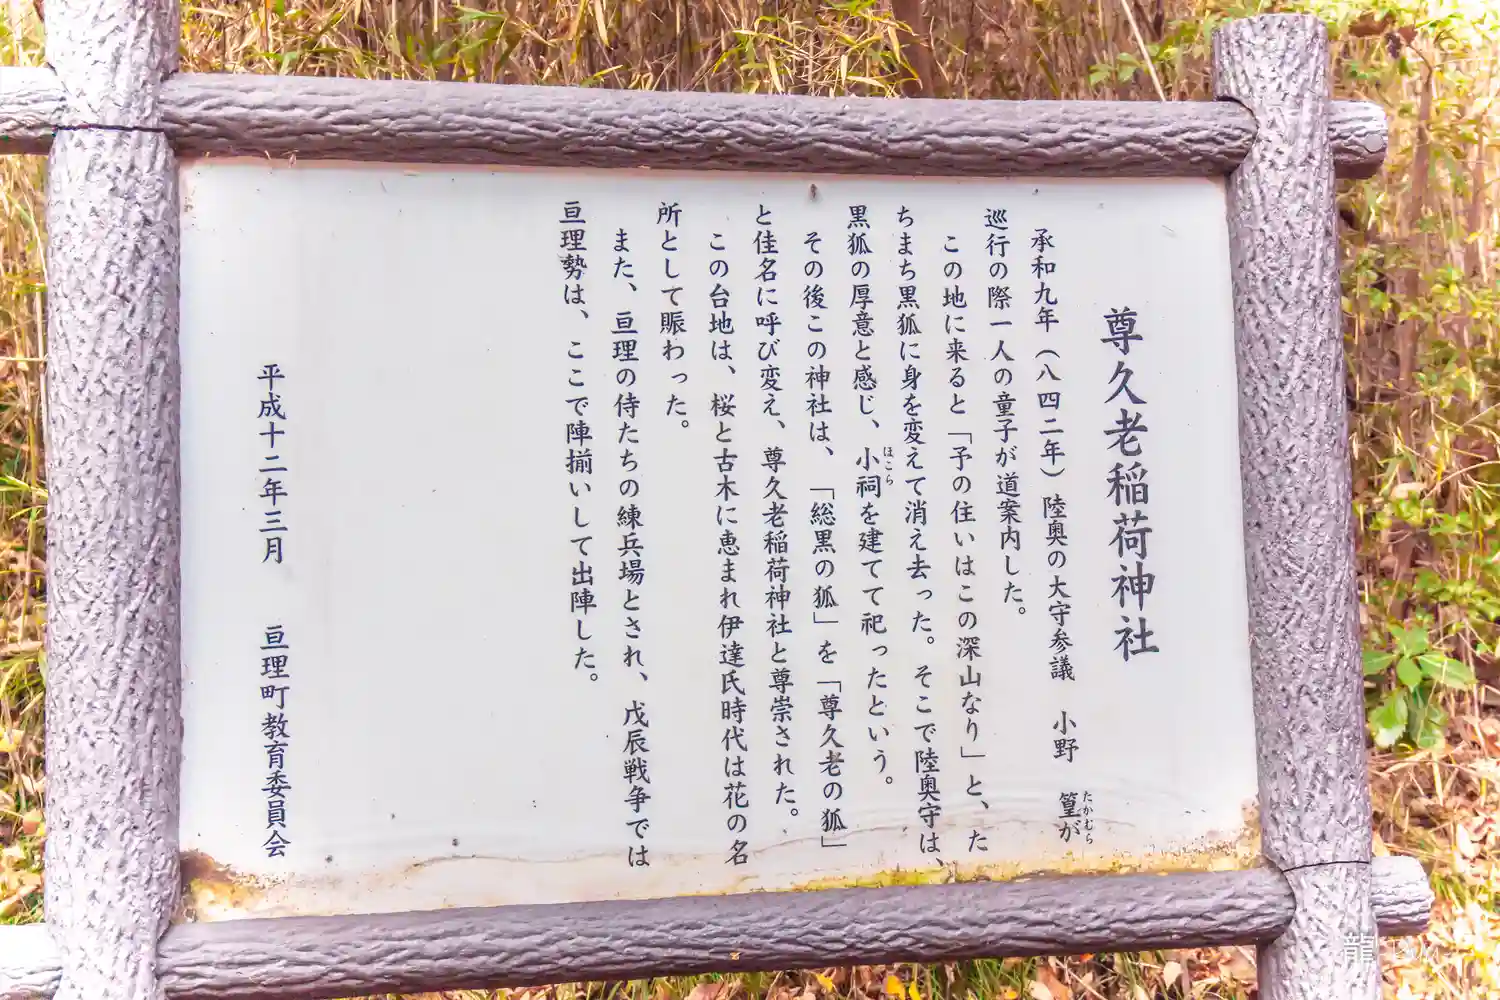 尊久老稲荷神社
承和九年(八四二年)陸奥の大守参議 小野 篁が
たかむら
巡行の際一人の童子が道案内した。
この地に来ると「予の住いはこの深山なり」と、た
ちまち黒狐に身を変えて消え去った。そこで陸奥守は、
黒狐の厚意と感じ、小祠を建てて祀ったという。
ほこら
その後この神社は、「総黒の狐」を「尊久老の狐」
と佳名に呼び変え、尊久老稲荷神社と尊崇された。
この台地は、桜と古木に恵まれ伊達氏時代は花の名
所として賑わった。
また、亘理の侍たちの練兵場とされ、戊辰戦争では
亘理勢は、ここで陣揃いして出陣した。
平成十二年三月 亘理町教育委員会
龍